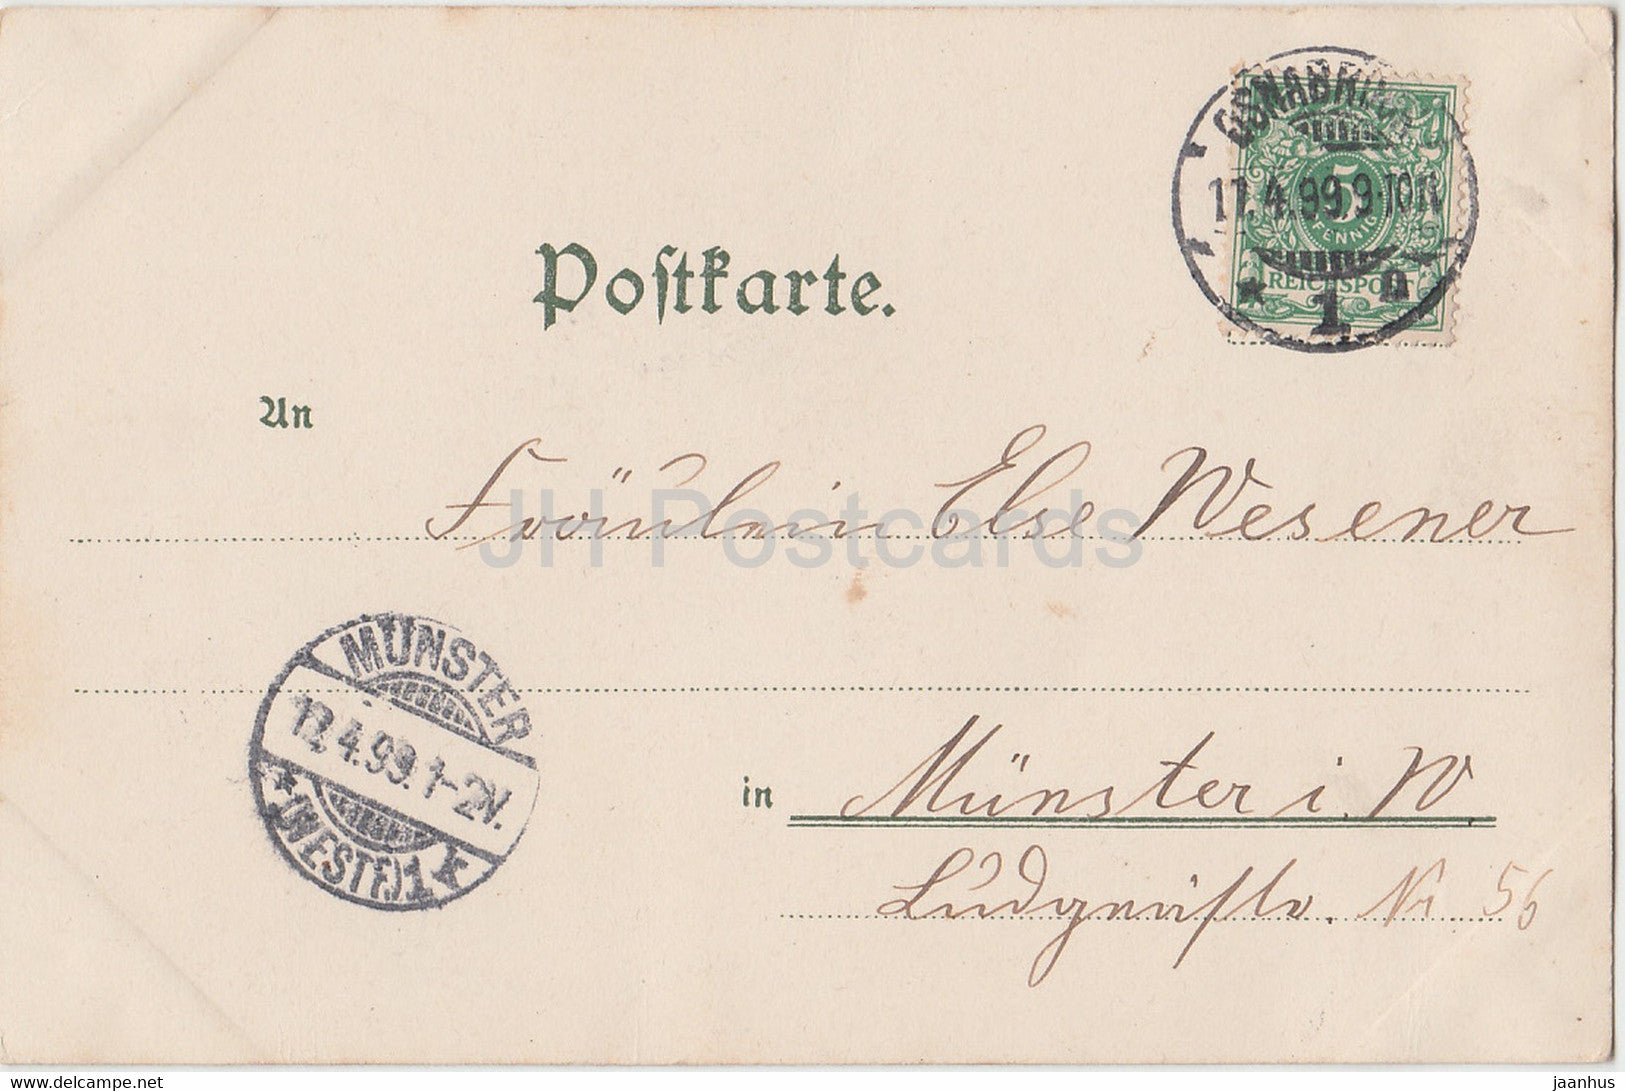 OSNABRÜCK
11.4.99 9-10 N
* 1 n
5
PFENNIG
REICHSPOST
Postkarte.
An
Fräulein Else Wesener
JH Postcards
MÜNSTER
12.4.99.1-2N.
* (WESTF.) 1 *
in Münster i. W.
Nr 56
delcampe.net
jaanhus